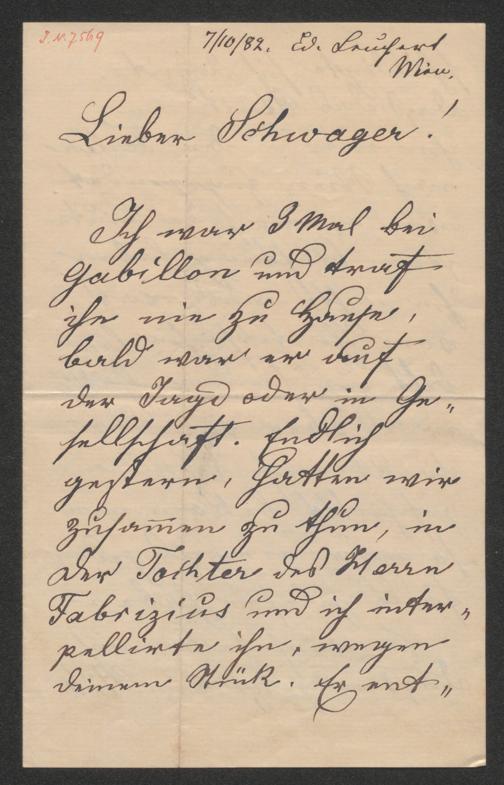 J. N. 7569
7/10/82. Ed. Leuchert
Wien.
Lieber Schwager!
Ich war 3 Mal bei
Gabillon und traf
ihn nie zu Hause,
bald war er auf
der Jagd oder in Ge„
sellschaft. Endlich
gestern, hatten wir
zusam̅en zu thun, in
der Tochter des Herrn
Fabrizius und ich inter„
pellirte ihn, wegen
deinem Stük. Er ent„